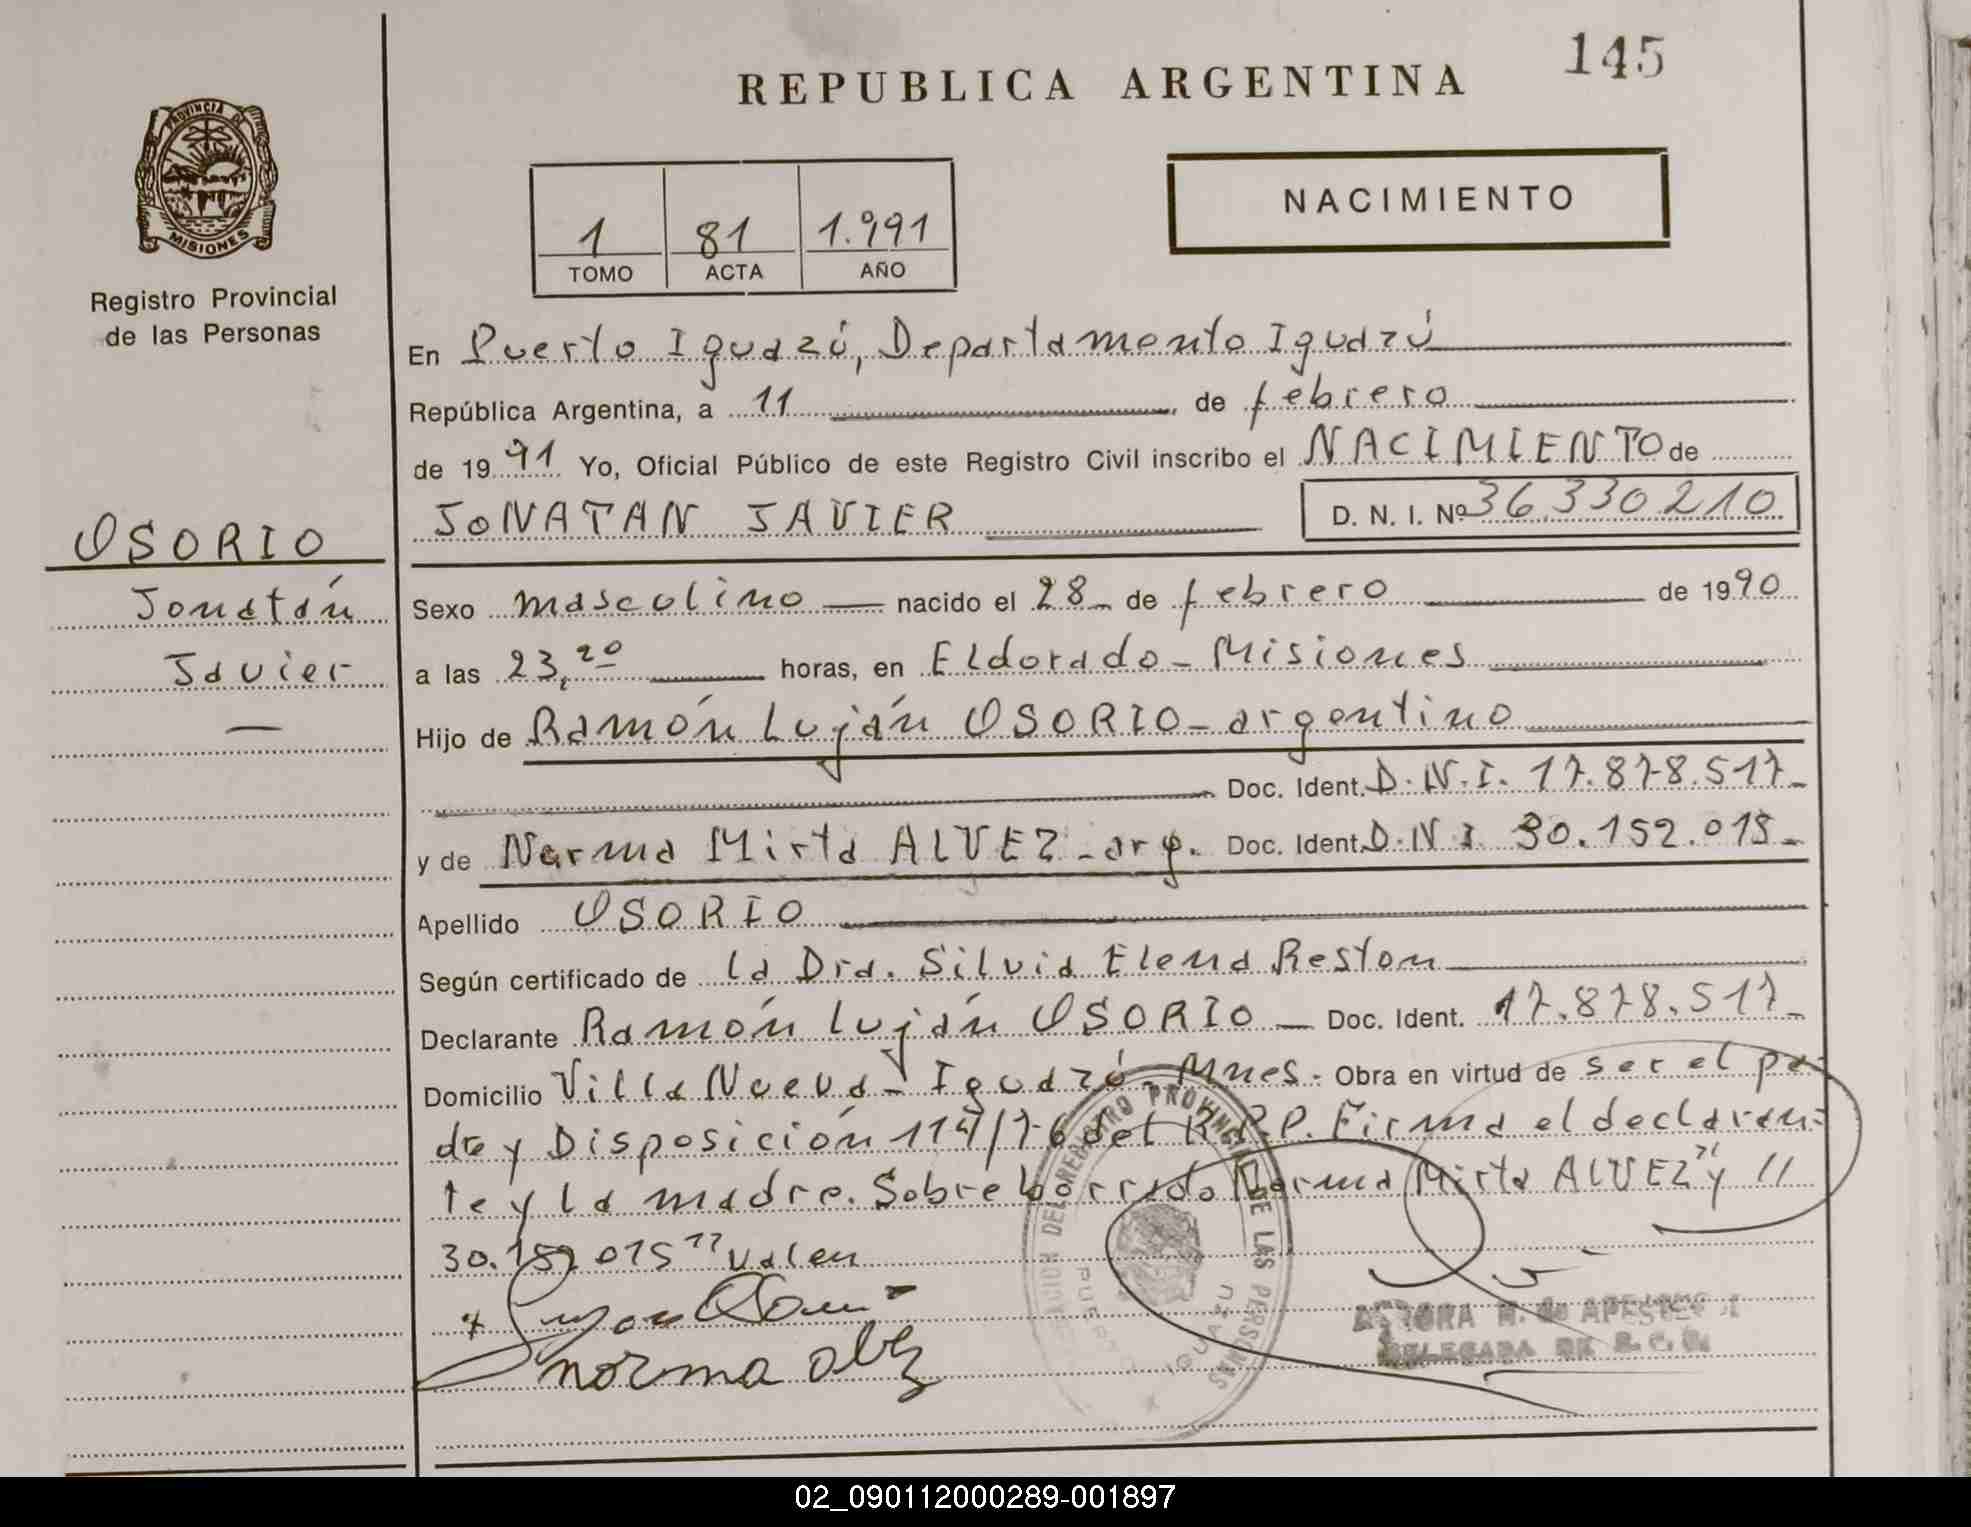 145
REPUBLICA ARGENTINA
NACIMIENTO
1 81 1.991
TOMO ACTA AÑO
PROVINCIA DE
MISIONES
Registro Provincial
de las Personas
OSORIO
Jonatán
Javier
En Puerto Iguazú, Departamento Iguazú
República Argentina, a 11 de febrero
de 1991 Yo, Oficial Público de este Registro Civil inscribo el NACIMIENTO de
JONATAN JAVIER D. N. I. Nº 36.330210
Sexo masculino nacido el 28 de febrero de 1990
a las 23,20 horas, en Eldorado - Misiones
Hijo de Ramón Luján OSORIO - argentino
Doc. Ident. D.N.I. 17.878.517
y de Norma Mirta ALVEZ - arg. Doc. Ident. D.N.I. 30.152.015
Apellido OSORIO
Según certificado de la Dra. Silvia Elena Reston
Declarante Ramón Luján OSORIO Doc. Ident. 17.878.517
Domicilio Villa Nueva - Iguazú - Mnes - Obra en virtud de ser el pa-
dre y Disposición 114/76 del R.P.P. Firma el declaran=
te y la madre. Sobre borrado Norma Mirta ALVEZ" y //
30.152 015" valen
norma alvez
REGISTRO PROVINCIAL DE LAS PERSONAS
PUERTO IGUAZU
DELEGADA DE R. C. G.
02_090112000289-001897